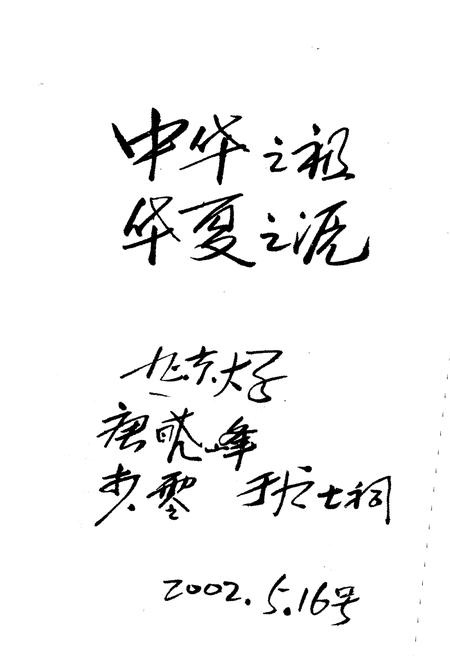 中华之祖
华夏之源
北京大学
唐晓峰
李零 于 七祠
2002.5.16号